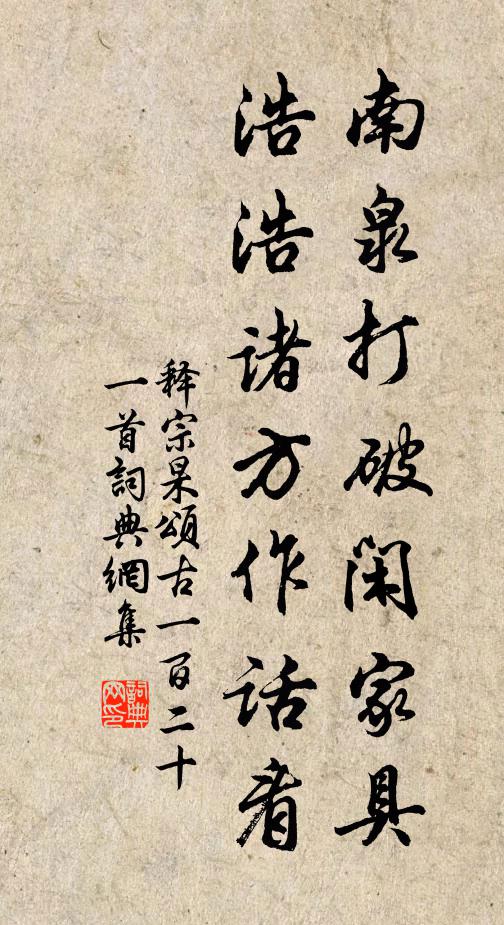 南泉打破閑家具
浩浩諸方作话看
释宗杲頌古一百二十
一首詞典網集
詞典网印